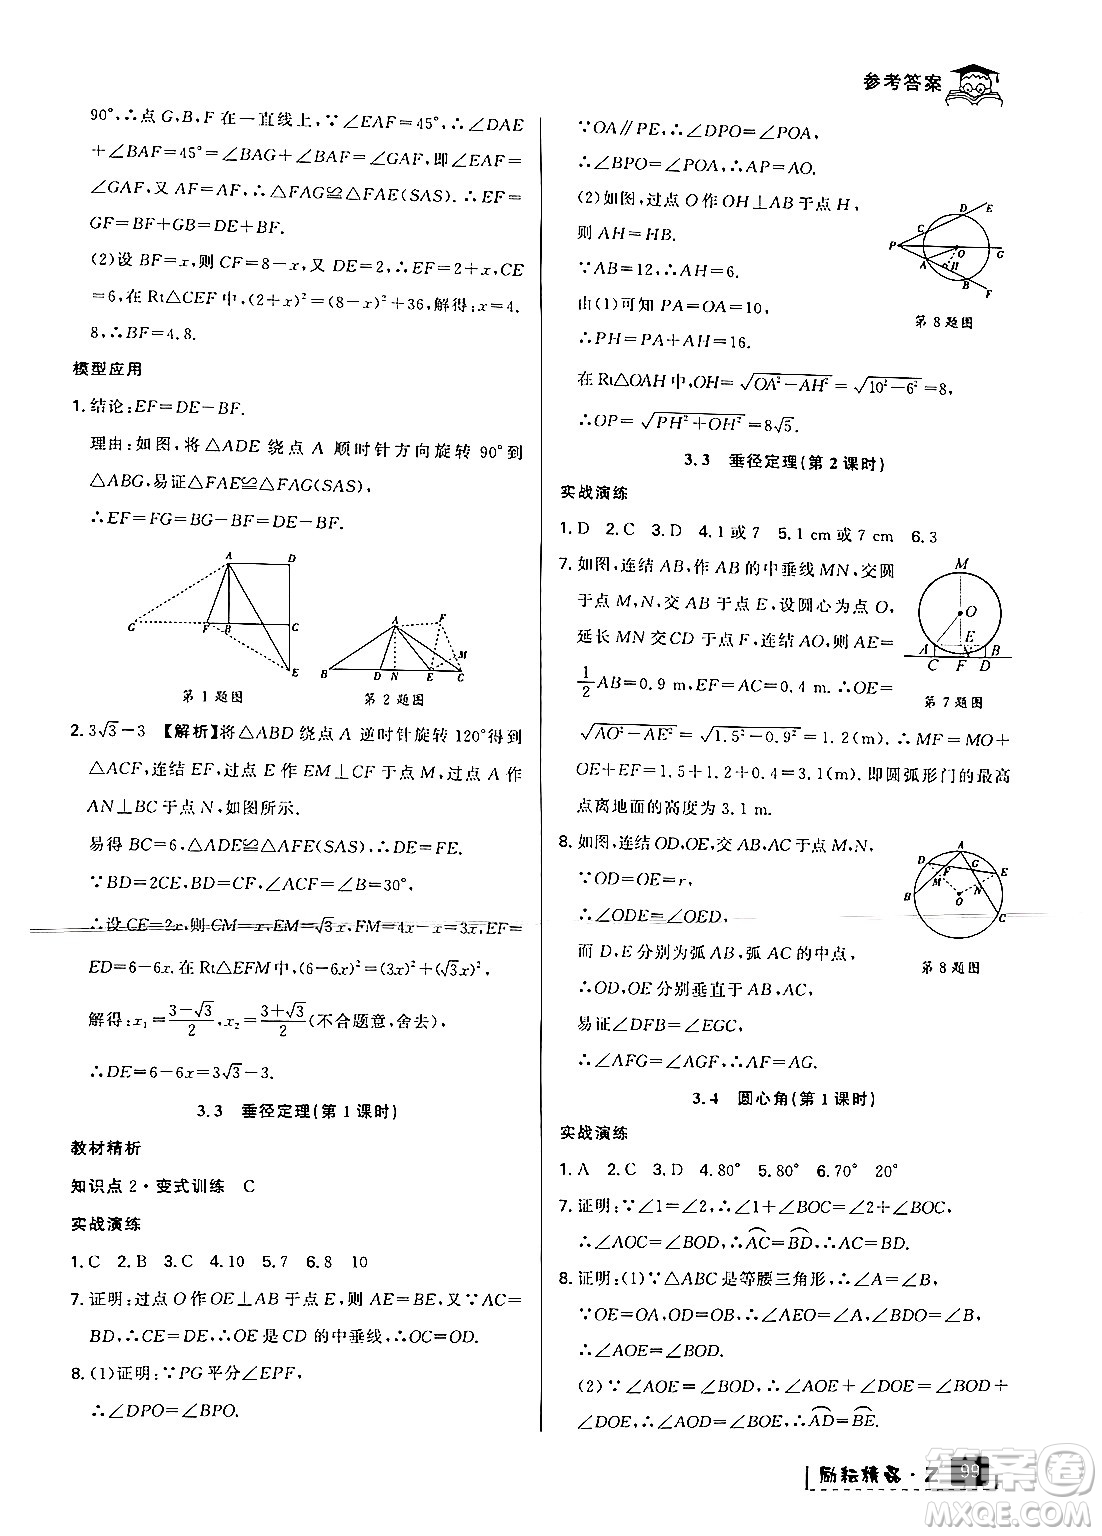 参考答案
90°,∴点G,B,F在一直线上,∵∠EAF=45°,∴∠DAE
+∠BAF=45°=∠BAG+∠BAF=∠GAF,即∠EAF=
∠GAF,又AF=AF,∴△FAG≌△FAE(SAS).∴EF=
GF=BF+GB=DE+BF.
(2)设BF=x,则CF=8-x,又DE=2,∴EF=2+x,CE
=6,在Rt△CEF中,(2+x)²=(8-x)²+36,解得:x=4.
8,∴BF=4.8.
模型应用
1.结论:EF=DE-BF.
理由:如图,将△ADE绕点A顺时针方向旋转90°得到
△ABG,易证△FAE≌△FAG(SAS),
∴EF=FG=BG-BF=DE-BF.
A D G F B C E
第1题图
A F M B D N E C
第2题图
2.3√3-3 【解析】将△ABD绕点A逆时针旋转120°得到
△ACF,连结EF,过点E作EM⊥CF于点M,过点A作
AN⊥BC于点N,如图所示.
易得BC=6,△ADE≌△AFE(SAS),∴DE=FE.
∵BD=2CE,BD=CF,∠ACF=∠B=30°,
∴设CE=2x,则CM=x,EM=√3x,FM=4x-x=3x,EF=
ED=6-6x.在Rt△EFM中,(6-6x)²=(3x)²+(√3x)²,
解得:x₁=(3-√3)/2,x₂=(3+√3)/2(不合题意,舍去),
∴DE=6-6x=3√3-3.
3.3 垂径定理(第1课时)
教材精析
知识点2·变式训练 C
实战演练
1.C 2.B 3.C 4.10 5.7 6.8 10
7.证明:过点O作OE⊥AB于点E,则AE=BE,又∵AC=
BD,∴CE=DE,∴OE是CD的中垂线,∴OC=OD.
8.(1)证明:∵PG平分∠EPF,
∴∠DPO=∠BPO.
∵OA∥PE,∴∠DPO=∠POA,
∴∠BPO=∠POA,∴AP=AO.
(2)如图,过点O作OH⊥AB于点H,
则AH=HB.
∵AB=12,∴AH=6.
由(1)可知PA=OA=10,
∴PH=PA+AH=16.
P C D E O G A H B F
第8题图
在Rt△OAH中,OH=√(OA²-AH²)=√(10²-6²)=8,
∴OP=√(PH²+OH²)=8√5.
3.3 垂径定理(第2课时)
实战演练
1.D 2.C 3.D 4.1或7 5.1 cm或7 cm 6.3
7.如图,连结AB,作AB的中垂线MN,交圆
于点M,N,交AB于点E,设圆心为点O,
延长MN交CD于点F,连结AO,则AE=
1/2AB=0.9 m,EF=AC=0.4 m.∴OE=
M O A E B C F N D
第7题图
√(AO²-AE²)=√(1.5²-0.9²)=1.2(m).∴MF=MO+
OE+EF=1.5+1.2+0.4=3.1(m).即圆弧形门的最高
点离地面的高度为3.1 m.
8.如图,连结OD,OE,交AB,AC于点M,N,
∵OD=OE=r,
∴∠ODE=∠OED,
而D,E分别为弧AB,弧AC的中点,
∴OD,OE分别垂直于AB,AC,
易证∠DFB=∠EGC,
∴∠AFG=∠AGF,∴AF=AG.
A D F G E M N B O C
第8题图
3.4 圆心角(第1课时)
实战演练
1.A 2.C 3.D 4.80° 5.80° 6.70° 20°
7.证明:∵∠1=∠2,∴∠1+∠BOC=∠2+∠BOC,
∴∠AOC=∠BOD,∴AC⌒=BD⌒,∴AC=BD.
8.证明:(1)∵△ABC是等腰三角形,∴∠A=∠B,
∵OE=OA,OD=OB,∴∠AEO=∠A,∠BDO=∠B,
∴∠AOE=∠BOD.
(2)∵∠AOE=∠BOD,∴∠AOE+∠DOE=∠BOD+
∠DOE,∴∠AOD=∠BOE,∴AD⌒=BE⌒.
励耘精品·Z 99
答案卷
MXQE.COM